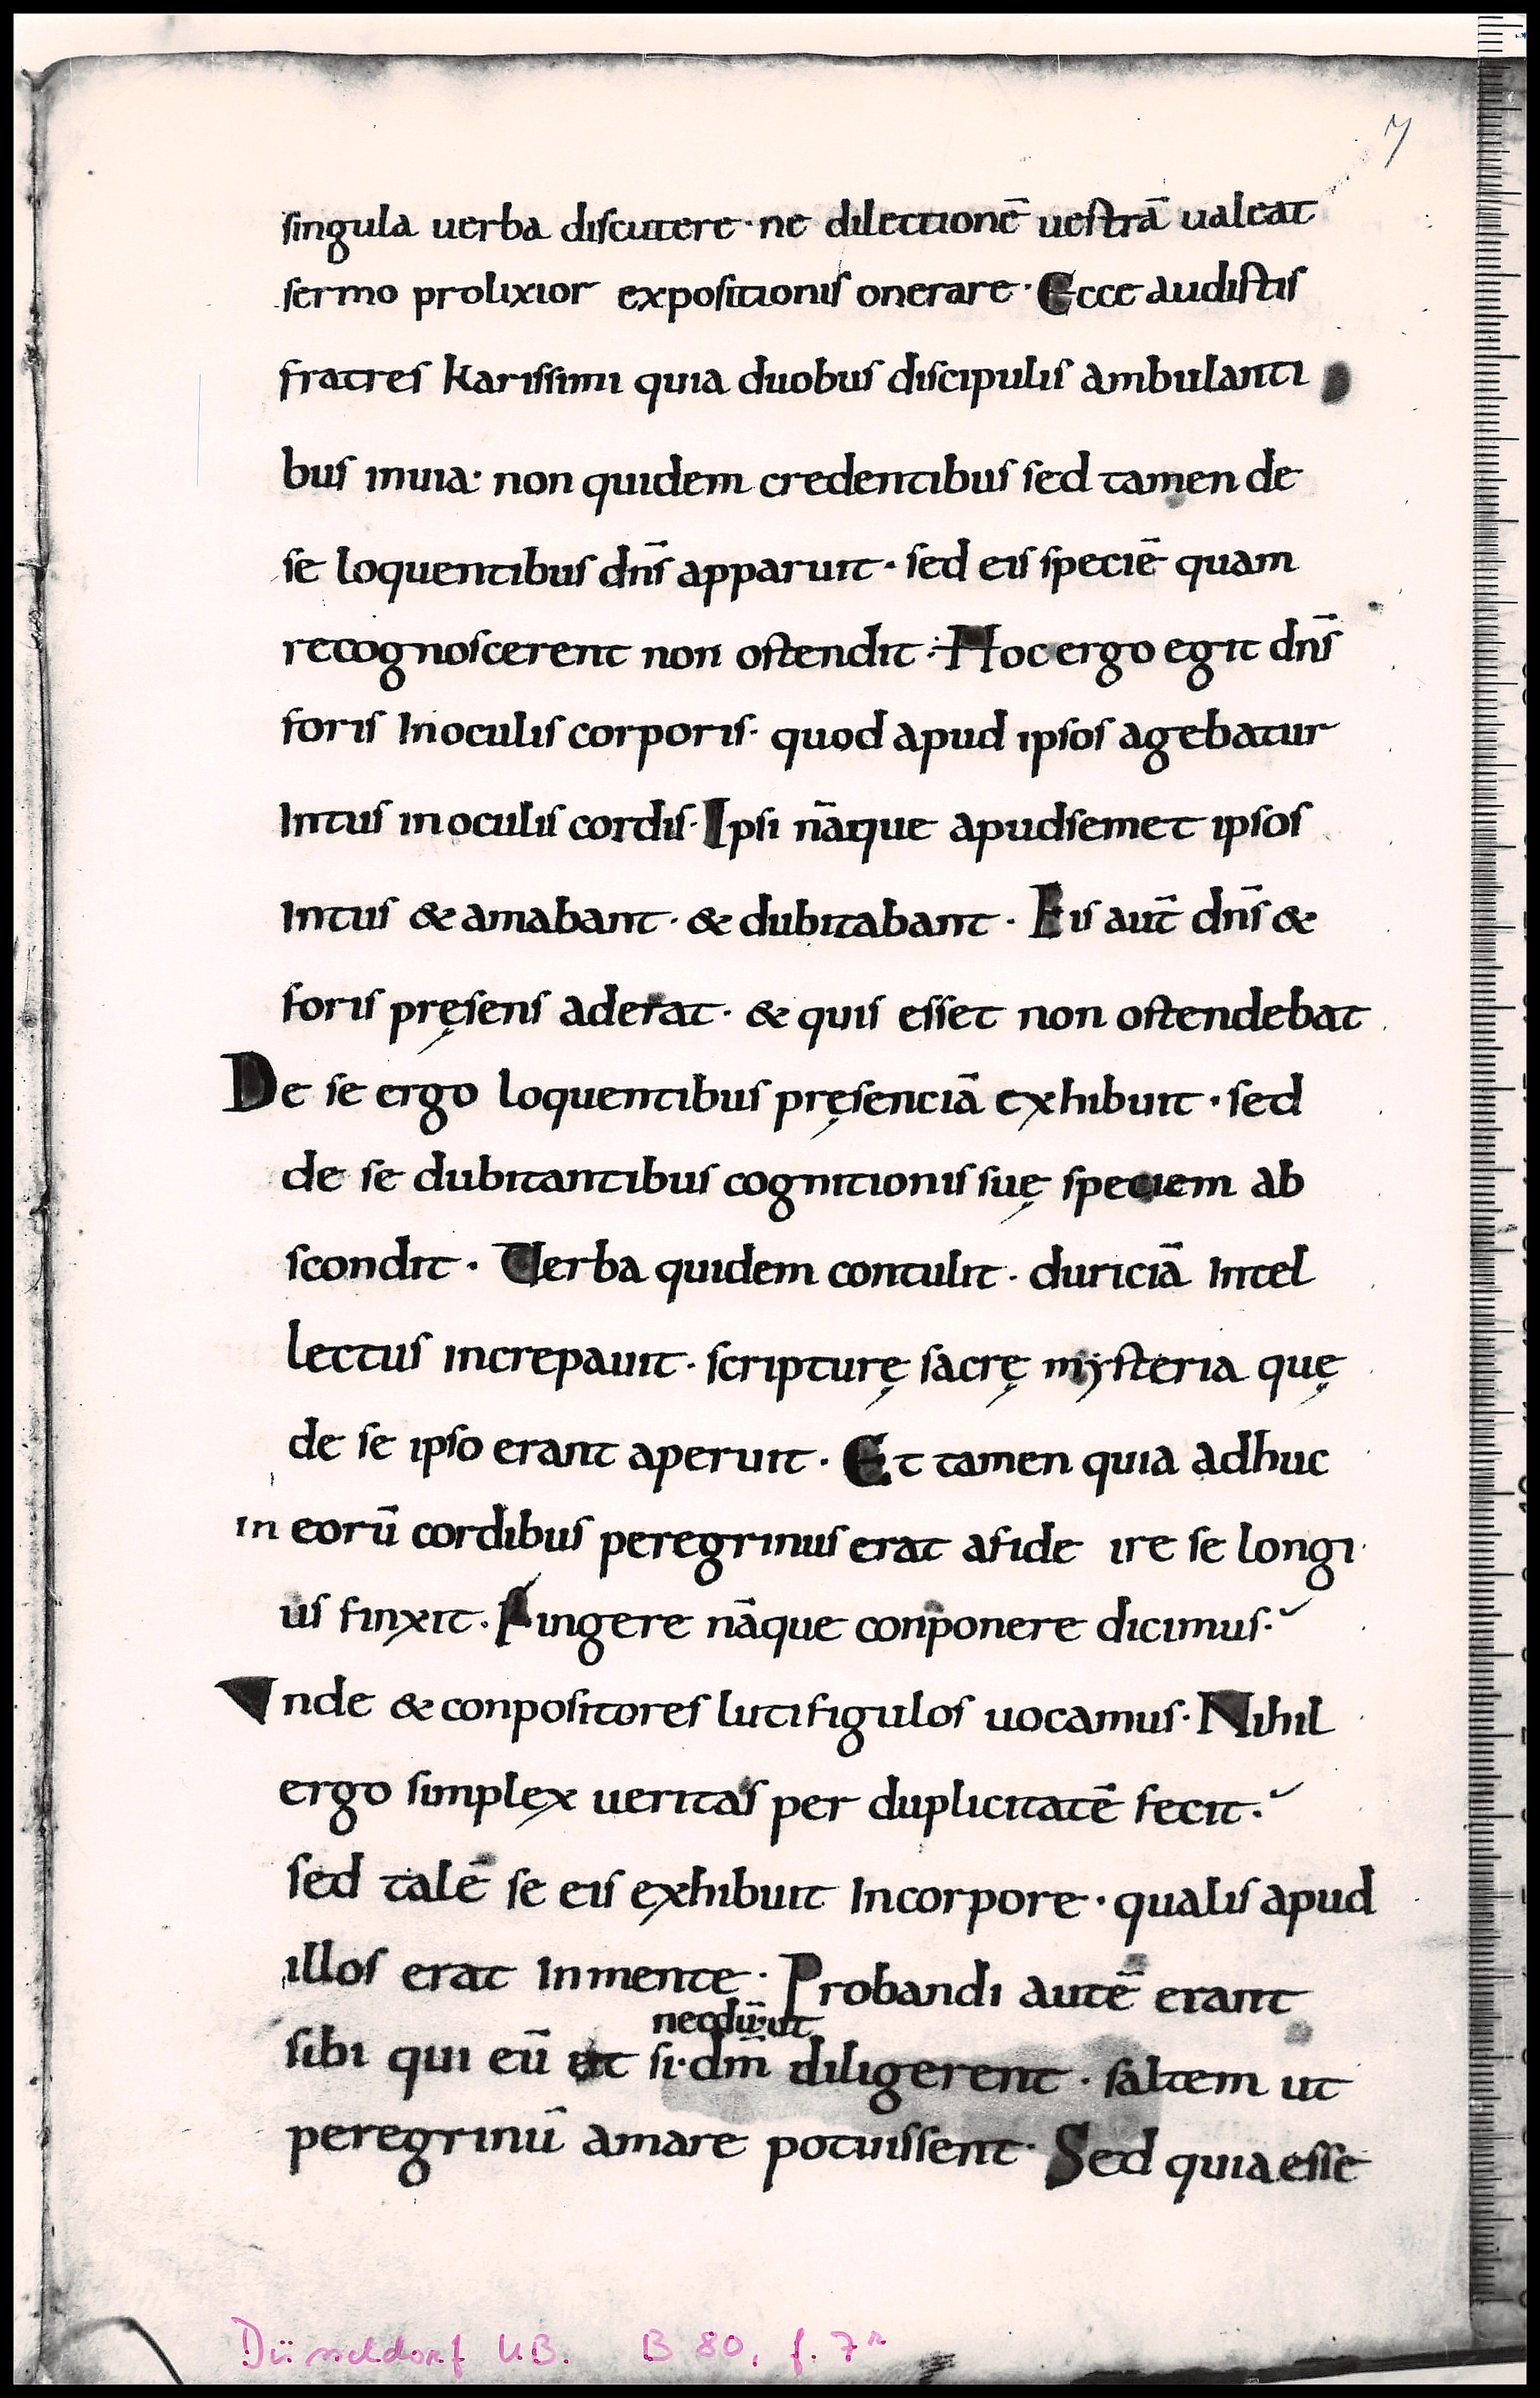 7
singula uerba discutere · ne dilectionē uestrā ualeat
sermo prolixior expositionis onerare · Ecce audistis
fratres karissimi quia duobus discipulis ambulanti
bus inuia · non quidem credentibus sed tamen de
se loquentibus dn̄s apparuit · sed eis speciē quam
recognoscerent non ostendit · Hoc ergo egit dn̄s
foris In oculis corporis · quod apud ipsos agebatur
Intus in oculis cordis · Ipsi nāque apud semet ipsos
Intus & amabant · & dubitabant · Eis aut̄ dn̄s &
foris pręsens aderat · & quis esset non ostendebat
De se ergo loquentibus pręsenciā exhibuit · sed
de se dubitantibus cognitionis suę speciem ab
scondit · Uerba quidem contulit · duriciā Intel
lectus increpauit · scripturę sacrę mysteria quę
de se ipso erant aperuit · Et tamen quia adhuc
in eorū cordibus peregrinus erat afide ire se longi
us finxit · Fingere nāque conponere dicimus ·
Unde & conpositores luti figulos uocamus · Nihil
ergo simplex ueritas per duplicitatē fecit ·
sed talē se eis exhibuit Incorpore · qualis apud
illos erat Inmente · Probandi autē erant
necdū ut
sibi qui eū ut si · dm̄ diligerent · saltem ut
peregrinū amare potuissent · Sed quia esse
Düsseldorf UB. B 80, f. 7r